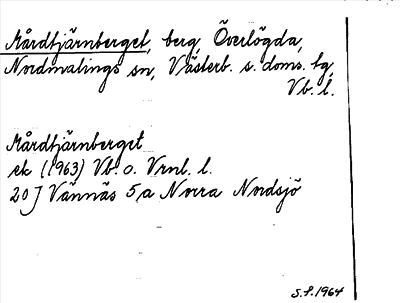 Mårdtjärnberget, berg, Överlögda,
Nordmalings sn, Västerb. s. doms. tg,
Vb. l.
Mårdtjärnberget
ek (1963) Vb. o. Vrnl. l.
20 J Vännäs 5 a Norra Nordsjö
S.S. 1964